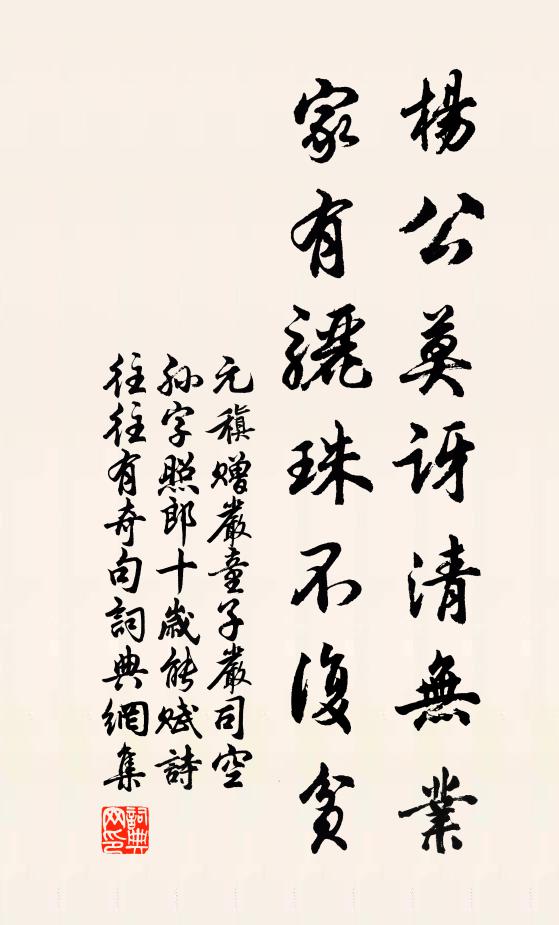 楊公莫訝清無業
家有驪珠不復貧
元稹贈嚴童子嚴司空
孫字照郎十歲能賦詩
往往有奇句詞典網集
詞典网印